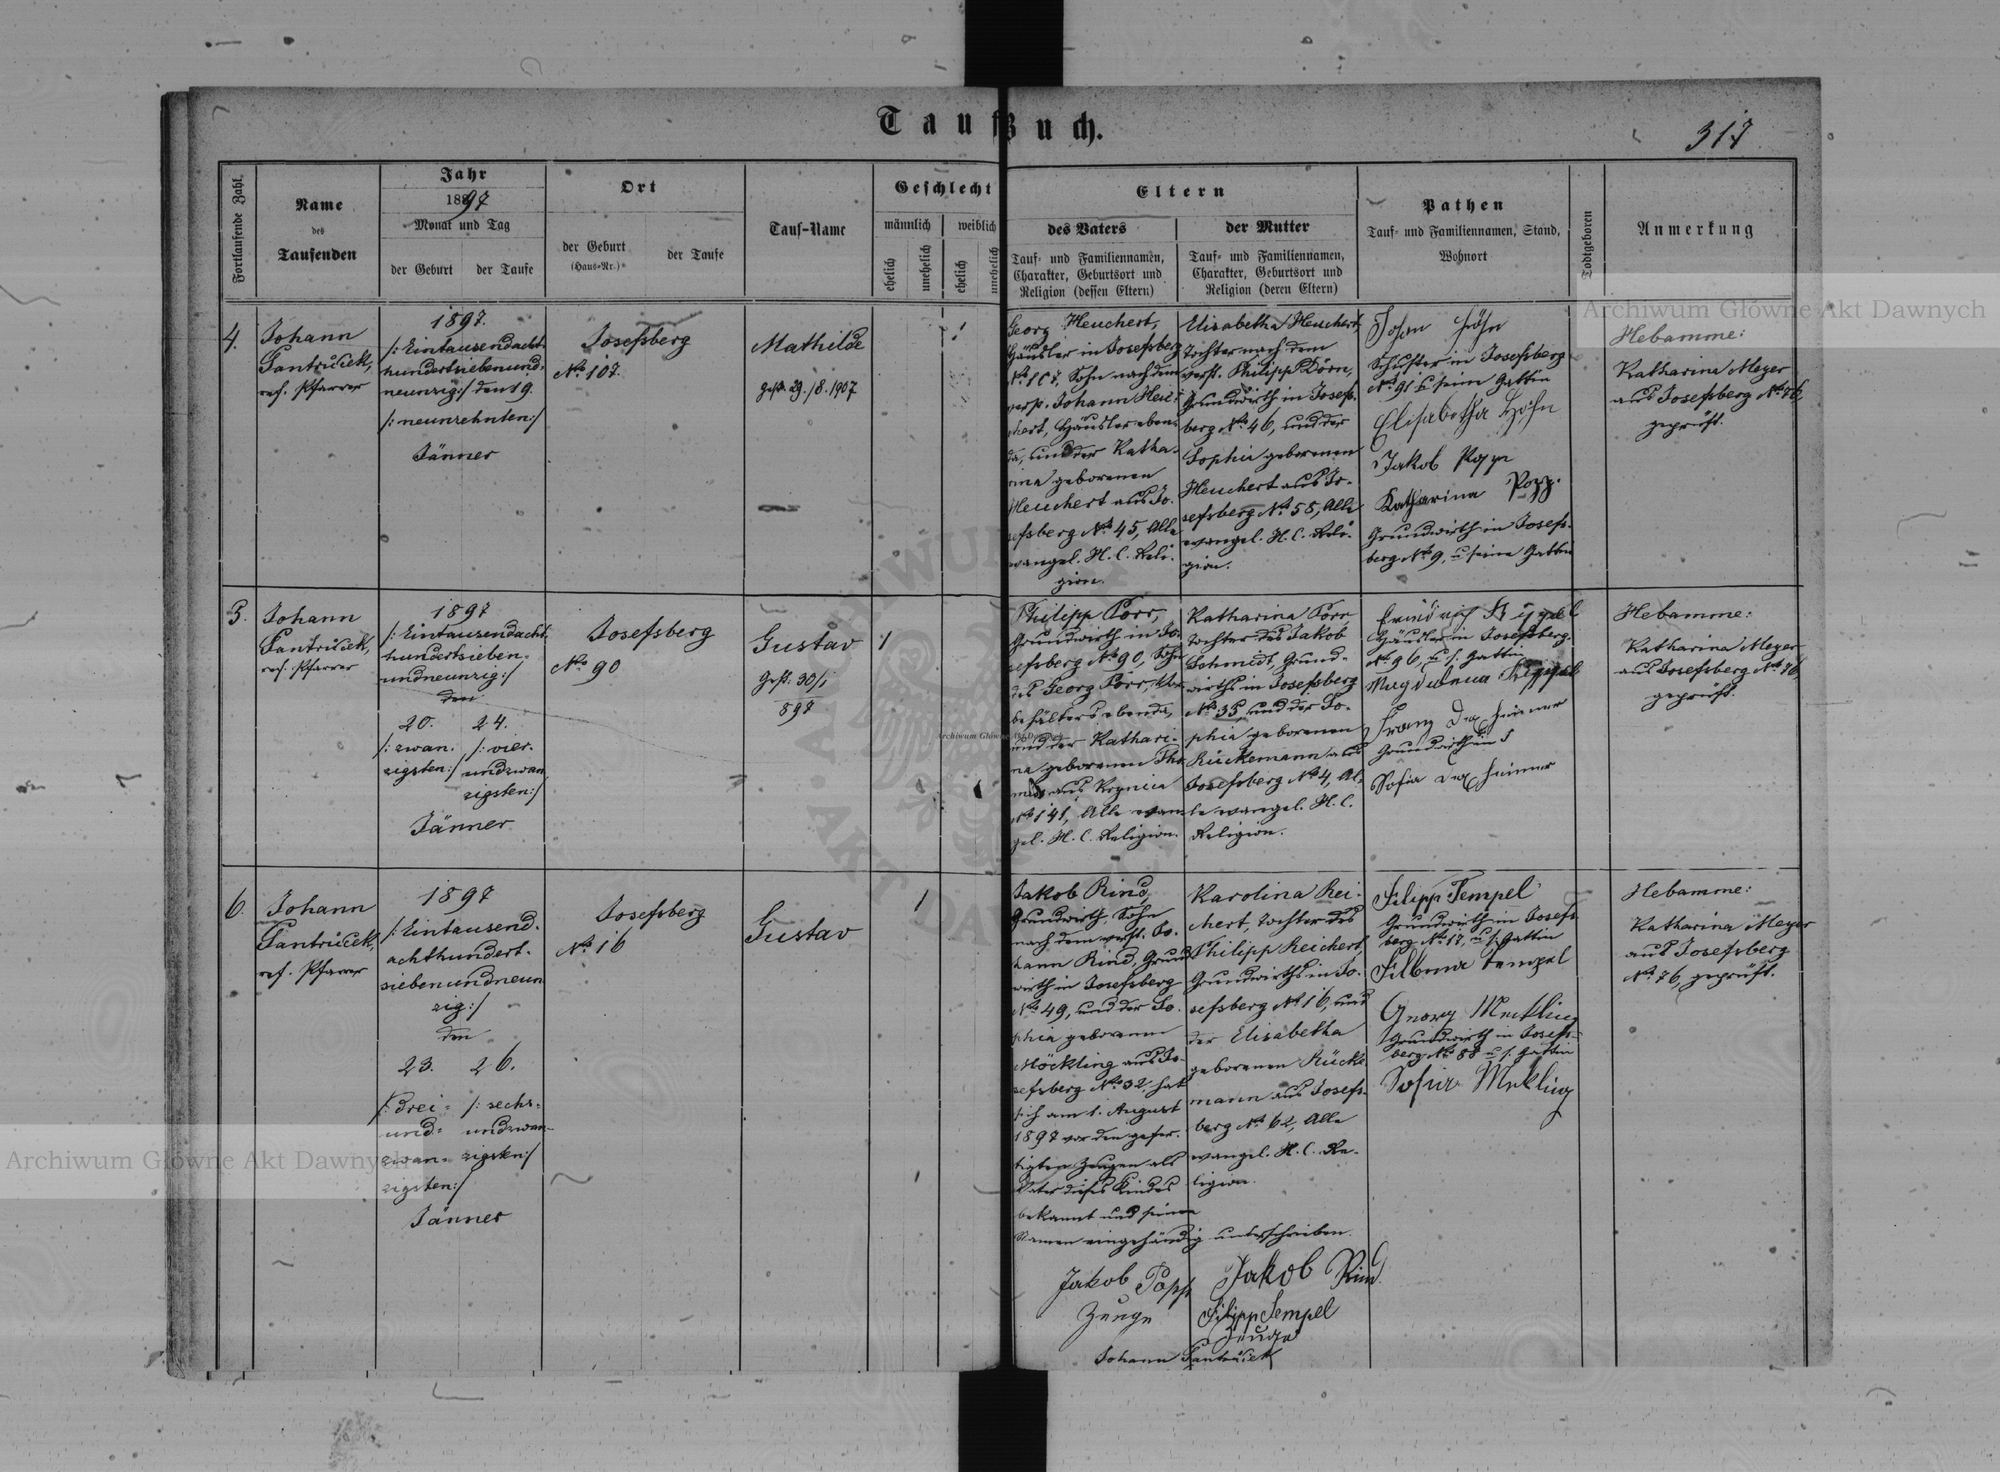 Taufbuch.
317
Fortlaufende Zahl.
Name
des
Taufenden
Jahr
1897
Monat und Tag
der Geburt
der Taufe
Ort
der Geburt
(Haus-Nr.)
der Taufe
Tauf-Name
Geschlecht
männlich
weiblich
ehelich
unehelich
ehelich
unehelich
Eltern
des Vaters
Tauf- und Familiennamen,
Charakter, Geburtsort und
Religion (dessen Eltern)
der Mutter
Tauf- und Familiennamen,
Charakter, Geburtsort und
Religion (deren Eltern)
Pathen
Tauf- und Familiennamen, Stand,
Wohnort
Todtgeboren
Anmerkung
4.
Johann
Fantrücek,
ref. Pfarrer
1897.
/: Eintausendacht-
hundertsiebenund-
neunzig :/ den 19.
/: neunzehnten :/
Jänner
Josefsberg
No 107.
Mathilde
gest. 29./8. 1907
1
Georg Heuchert,
Häusler in Josefsberg
No 107, Sohn nach dem
verst. Johann Heu-
chert, Häusler eben-
da, und der Katha-
rina geborenen
Heuchert aus Jo-
sefsberg No 45, Alle
evangel. H. C. Reli-
gion.
Elisabetha Heuchert,
Tochter nach dem
verst. Philipp Dörn,
Grundwirth in Josefs-
berg No 46, und der
Sophia geborenen
Heuchert aus Jo-
sefsberg No 58, Alle
evangel. H. C. Reli-
gion.
Johan Höhn
Schuster in Josefsberg
No 91 u seine Gattin
Elisabetha Höhn
Jakob Popp
Katharina Popp.
Grundwirth in Josefs-
berg No 9, u seine Gattin
Hebamme:
Katharina Meyer
aus Josefsberg No 76,
geprüft.
5.
Johann
Fantrücek,
ref. Pfarrer
1897
/: Eintausendacht-
hundertsieben-
undneunzig :/
den
20. 24.
/: zwan- /: vier-
zigsten :/ undzwan-
zigsten :/
Jänner
Josefsberg
No 90
Gustav
Gest: 30/1
897
1
Philipp Porr,
Grundwirth in Jo-
sefsberg No 90, Sohn
des Georg Porr,
behälters ebenda,
und der Kathari-
na geborenen Tho-
mas aus Ugnicz
No 141, Alle evan-
gel. H. C. Religion.
Katharina Porr,
Tochter des Jakob
Schmidt, Grund-
wirths in Josefsberg
No 35 und der So-
phia geborenen
Rückemann aus
Josefsberg No 4, Al-
le evangel. H. C.
Religion.
Häusler in Josefsberg
No 96, u s. Gattin
Magdalena
Franz Dexheimer
Grundwirth in J
Sofia Dexheimer
Hebamme:
Katharina Meyer
aus Josefsberg No 76,
geprüft.
6.
Johann
Fantrücek,
ref. Pfarrer
1897
/: Eintausend-
achthundert-
siebenundneun-
zig :/
den
23. 26.
/: Drei- /: sechs-
und- undzwan-
zwan- zigsten :/
zigsten :/
Jänner
Josefsberg
No 16
Gustav
1
Jakob Rind,
Grundwirth, Sohn
nach dem verst. Jo-
hann Rind, Grund-
wirth in Josefsberg
No 49, und der So-
phia geborenen
Möckling aus Jo-
sefsberg No 32, hat
sich am 1. August
1897 vor den gefer-
tigten Zeugen als
Vater dieses Kindes
bekannt und seinen
Namen eigenhändig unterschrieben.
Karolina Rei-
chert, Tochter des
Philipp Reichert,
Grundwirths in Jo-
sefsberg No 16, und
der Elisabetha
geborenen Rücke-
mann aus Josefs-
berg No 62, Alle
evangel. H. C. Re-
ligion.
Filipp Tempel
Grundwirth in Josefs-
berg No 17, u s. Gattin
Filbina Tempel
Georg Mekling
Grundwirth in Josefs-
berg No 88 u s. Gattin
Sofia Mekling
Hebamme:
Katharina Meyer
aus Josefsberg
No 76, geprüft.
Jakob Popp
Zeuge
Jakob Rind.
Filipp Tempel
Zeuge
Johann Fantrücek
Archiwum Główne Akt Dawnych
Archiwum Główne Akt Dawnych
Archiwum Główne Akt Dawnych